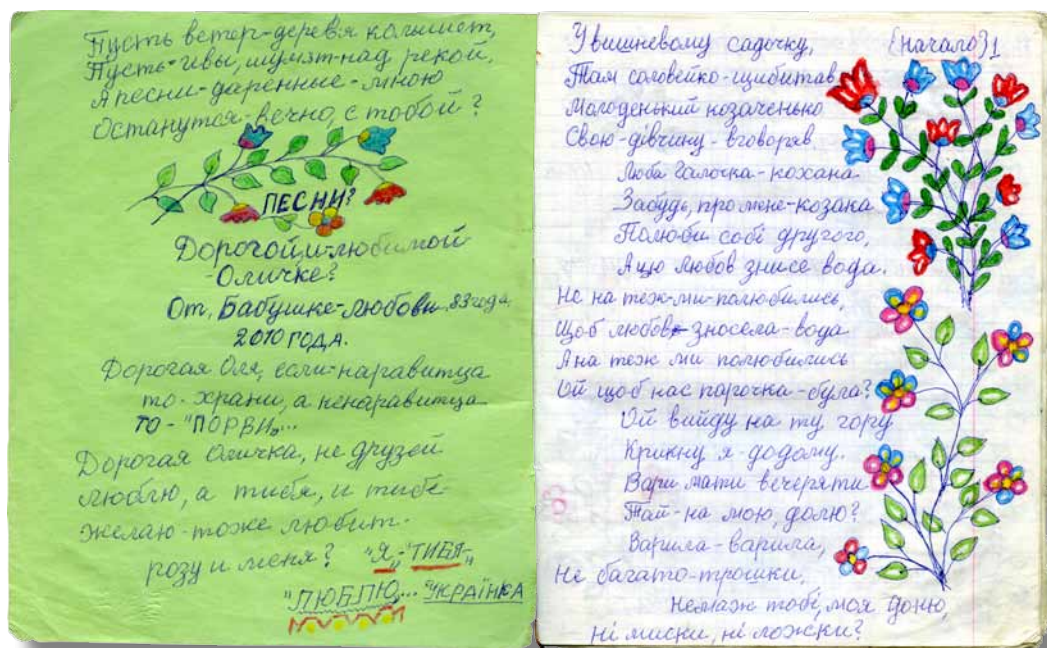 Пусть ветер-деревья колышет,
Пусть-ивы, шумят-над рекой,
А песни-даренные-мною
Останутся-вечно, с тобой?
ПЕСНИ?
Дорогой,и-любимой
Оличке?
От, Бабушке-любови, 83 года,
2010 ГОДА.
Дорогая Оля, если-наравитца
то-храни, а ненаравитца
ТО-"ПОРВИ„...
Дорогая Оличка, не друзей
люблю, а тибя, и тибе-
желаю-тоже любит-
розу и меня? "Я„-"ТИБЯ„
"ЛЮБЛЮ„... "УКРАЇНКА
У вишневому садочку, {начало} 1
Там соловейко-щибитав
Молоденький козаченько
Свою-дівчину-вговоряв
Люба Галочка-кохана
Забудь, про мене-козака
Полюби собі другого,
А цю любов знисе вода.
Не на теж-ми-полюбились,
Щоб любов зносела-вода
А на теж ми полюбились
Ой щоб нас парочка-була?
Ой вийду на ту, гору
Крикну я-додому.
Вари мати вечеряти
Тай-на мою, долю?
Варила-варила,
Не багато-трошки,
Немаж тобі, моя доню,
ні миски, ні ложки?